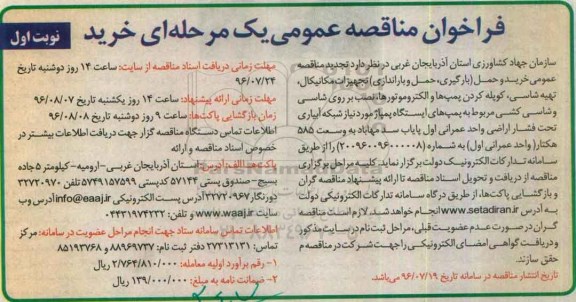 فراخوان مناقصه عمومی یک مرحله‌ای خرید
نوبت اول
سازمان جهاد کشاورزی استان آذربایجان غربی در نظر دارد تجدید مناقصه
عمومی خرید و حمل (بارگیری، حمل و باراندازی) تجهیزات مکانیکال،
تهیه شاسی، کوپله کردن پمپ‌ها و الکتروموتورها، نصب بر روی شاسی
و شاسی کشی مربوط به پمپ‌های ایستگاه پمپاژ مورد نیاز شبکه آبیاری
تحت فشار اراضی واحد عمرانی اول پایاب سد مهاباد به وسعت ۵۸۵
هکتار (واحد عمرانی اول) به شماره (۲۰۰۹۶۰۰۹۶۰۰۰۰۰۸) را از طریق
سامانه تدارکات الکترونیک دولت برگزار نماید. کلیه مراحل برگزاری
مناقصه از دریافت و تحویل اسناد مناقصه تا ارائه پیشنهاد مناقصه گران
و بازگشایی پاکت‌ها، از طریق درگاه سامانه تدارکات الکترونیکی دولت
به آدرس www.setadiran.ir انجام خواهد شد. لازم است مناقصه
گران در صورت عدم عضویت قبلی، مراحل ثبت نام در سایت مذکور
و دریافت گواهی امضای الکترونیکی را جهت شرکت در مناقصه م
حقق سازند.
تاریخ انتشار مناقصه در سامانه تاریخ ۹۶/۰۷/۱۹ می‌باشد.
مهلت زمانی دریافت اسناد مناقصه از سایت: ساعت ۱۴ روز دوشنبه تاریخ
۹۶/۰۷/۲۴
مهلت زمانی ارائه پیشنهاد: ساعت ۱۴ روز یکشنبه تاریخ ۹۶/۰۸/۰۷
زمان بازگشایی پاکت‌ها: ساعت ۹ روز دوشنبه تاریخ ۹۶/۰۸/۰۸
اطلاعات تماس دستگاه مناقصه گزار جهت دریافت اطلاعات بیشتر در
خصوص اسناد مناقصه و ارائه
پاکت‌ها (الف): آدرس: استان آذربایجان غربی-ارومیه- کیلومتر ۵ جاده
بسیج- صندوق پستی ۵۷۱۴۴ کدپستی ۵۷۴۹۱۵۷۵۹۹ تلفن ۳۲۷۲۰۹۷۰
دورنگار ۳۲۷۲۰۹۶۷ آدرس پست الکترونیکی info@eaaj.ir آدرس وب
سایت www.waaj.ir تلفن: ۰۴۴۳۱۹۷۴۲۳۲
اطلاعات تماس سامانه ستاد جهت انجام مراحل عضویت در سامانه: مرکز
تماس: ۲۷۳۱۳۱۳۱ دفتر ثبت نام: ۸۸۹۶۹۷۳۷ و ۸۵۱۹۳۷۶۸
۱- رقم برآورد اولیه معامله: ۲/۷۶۴/۸۱۰/۰۰۰ ریال
۲- ضمانت نامه به مبلغ: ۱۳۹/۰۰۰/۰۰۰ ریال